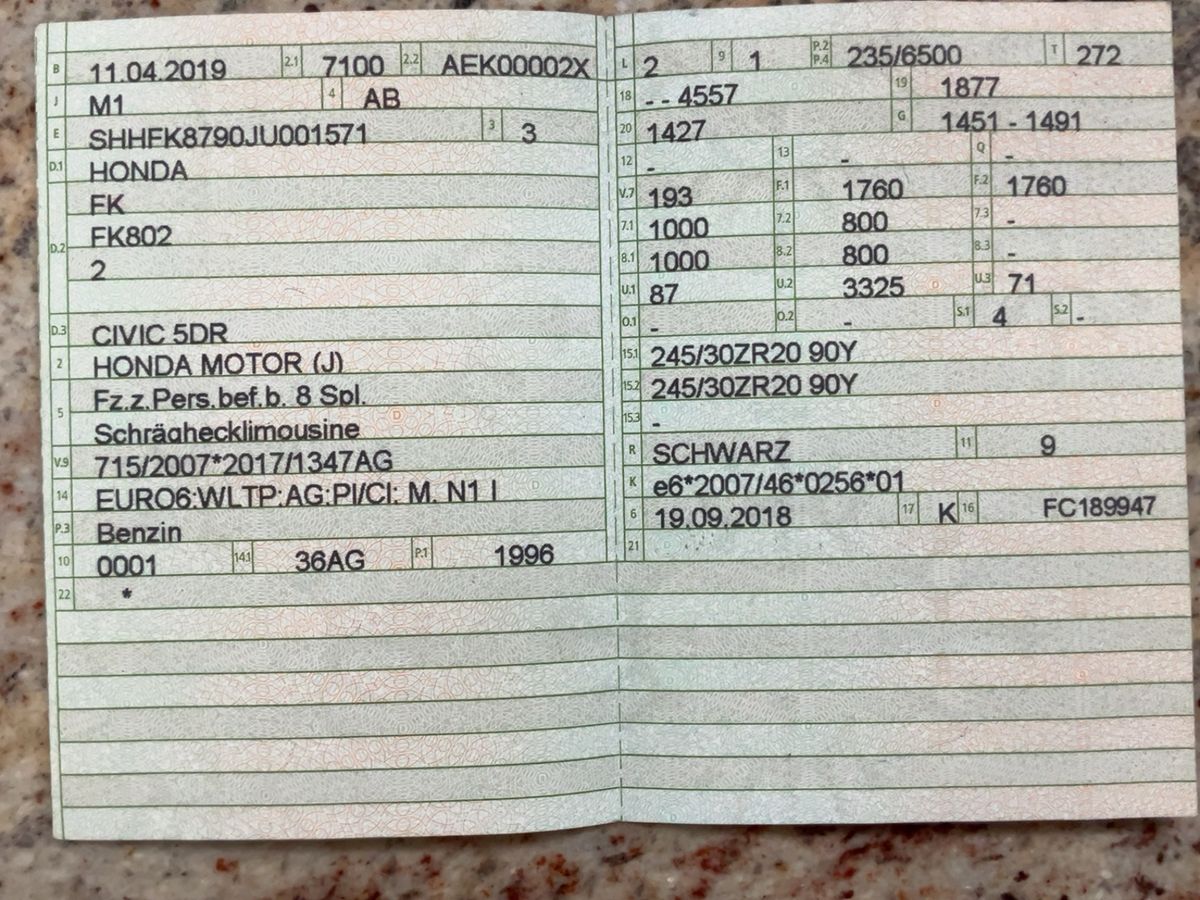 B 11.04.2019 2.1 7100 2.2 AEK00002X
J M1 4 AB
E SHHFK8790JU001571 3 3
D.1 HONDA
FK
D.2 FK802
2
D.3 CIVIC 5DR
2 HONDA MOTOR (J)
5 Fz.z.Pers.bef.b. 8 Spl.
Schräghecklimousine
V.9 715/2007*2017/1347AG
14 EURO6;WLTP;AG;PI/CI; M, N1 I
P.3 Benzin
10 0001 14.1 36AG P.1 1996
22 *
L 2 9 1 P.2 P.4 235/6500 T 272
18 - - 4557 19 1877
20 1427 G 1451 - 1491
12 - 13 - Q -
V.7 193 F.1 1760 F.2 1760
7.1 1000 7.2 800 7.3 -
8.1 1000 8.2 800 8.3 -
U.1 87 U.2 3325 U.3 71
O.1 - O.2 - S.1 4 S.2 -
15.1 245/30ZR20 90Y
15.2 245/30ZR20 90Y
15.3 -
R SCHWARZ 11 9
K e6*2007/46*0256*01
6 19.09.2018 17 K 16 FC189947
21